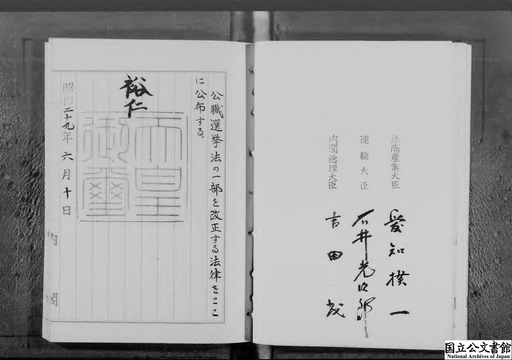 通商産業大臣 愛知揆一
運輸大臣 石井光次郎
内閣総理大臣 吉田茂
公職選挙法の一部を改正する法律をここ
に公布する。
裕仁
天皇
御璽
昭和二十九年六月十日
内閣
国立公文書館
National Archives of Japan